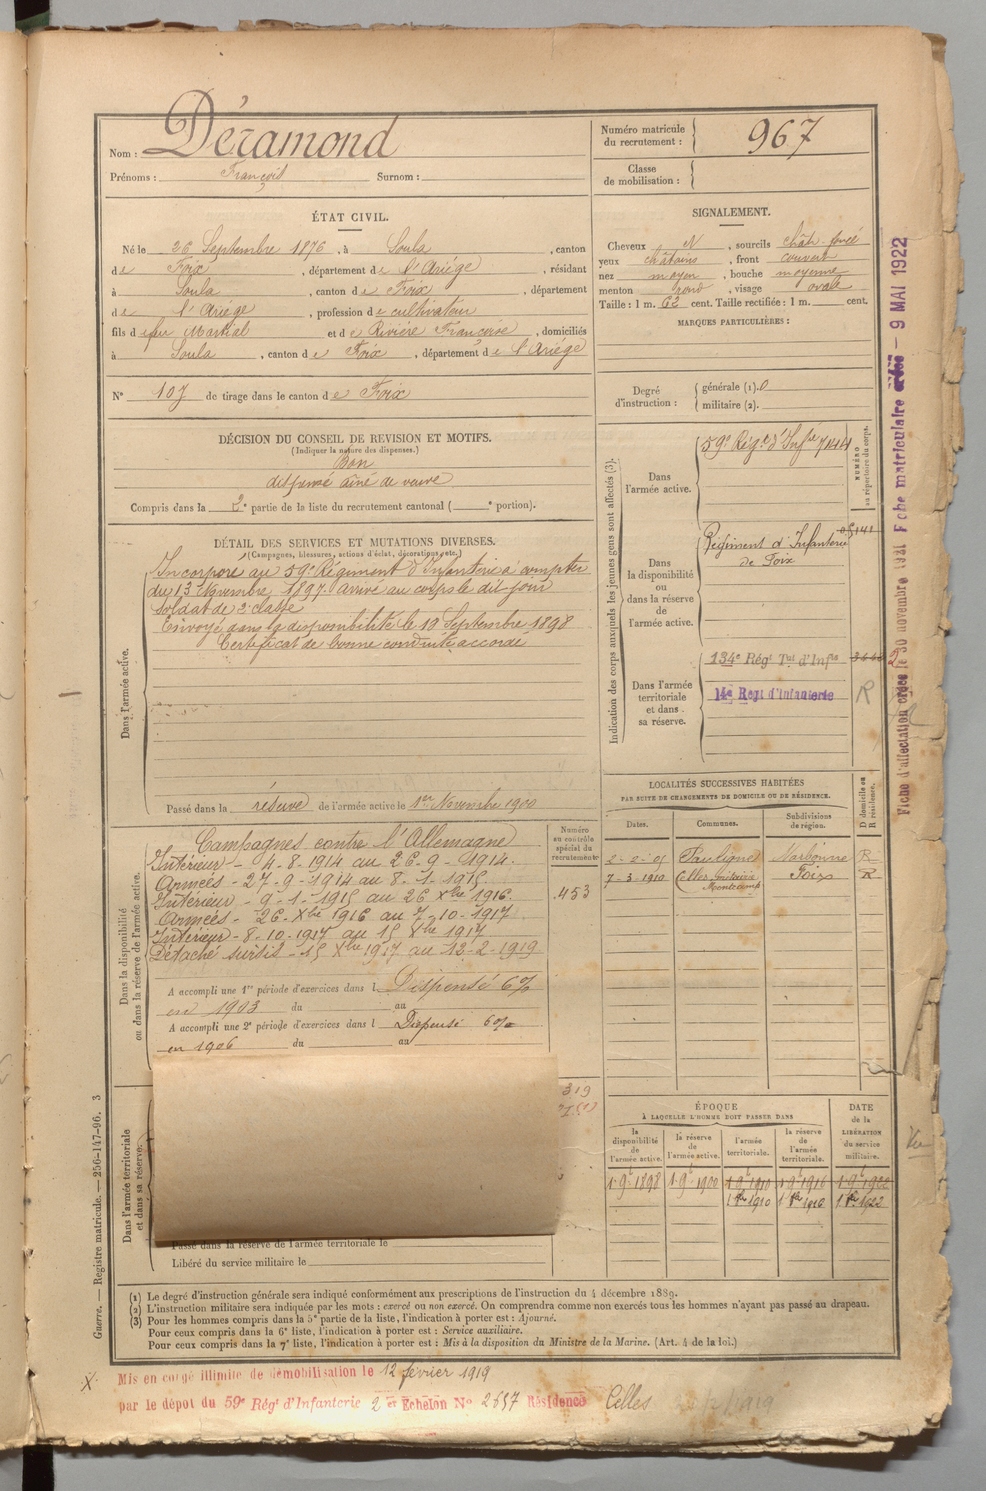 Nom : Déramond
Prénoms : François Surnom :
Numéro matricule du recrutement : 967
Classe de mobilisation :
ÉTAT CIVIL.
Né le 26 Septembre 1876, à Soula, canton
de Foix, département de l'Ariége, résidant
à Soula, canton de Foix, département
de l'Ariége, profession de cultivateur
fils de feu Martial et de Rivière Françoise, domiciliés
à Soula, canton de Foix, département de l'Ariége
N° 107 de tirage dans le canton de Foix
SIGNALEMENT.
Cheveux N, sourcils chât. foncé
yeux châtains, front couvert
nez moyen, bouche moyenne
menton rond, visage ovale
Taille : 1 m. 62 cent. Taille rectifiée : 1 m. cent.
MARQUES PARTICULIÈRES :
Degré d'instruction : générale (1). 0
militaire (2).
DÉCISION DU CONSEIL DE REVISION ET MOTIFS.
(Indiquer la nature des dispenses.)
Bon
dispensé aîné de veuve
Compris dans la 2e partie de la liste du recrutement cantonal ( e portion).
DÉTAIL DES SERVICES ET MUTATIONS DIVERSES.
(Campagnes, blessures, actions d'éclat, décorations, etc.)
Dans l'armée active.
Incorporé au 59e Régiment d'Infanterie à compter
du 13 Novembre 1897. Arrivé au corps le dit jour
Soldat de 2e classe
Envoyé dans la disponibilité le 19 Septembre 1898
Certificat de bonne conduite accordé
Passé dans la réserve de l'armée active le 1er Novembre 1900
Indication des corps auxquels les jeunes gens sont affectés (3).
NUMÉRO au répertoire du corps.
Dans l'armée active.
59e Régt d'Infie 7444
Dans la disponibilité ou dans la réserve de l'armée active.
Régiment d'Infanterie
de Foix
Dans l'armée territoriale et dans sa réserve.
134e Régt Tal d'Infie
14e Régt d'Infanterie
R
LOCALITÉS SUCCESSIVES HABITÉES
PAR SUITE DE CHANGEMENTS DE DOMICILE OU DE RÉSIDENCE.
Dates. Communes. Subdivisions de région. D domicile ou R résidence.
2-2-05 Pauligne Narbonne R
7-3-1910 Celles Foix R
Dans la disponibilité ou dans la réserve de l'armée active.
Numéro au contrôle spécial du recrutement
453
Campagnes contre l'Allemagne
Intérieur - 4-8-1914 au 26-9-1914.
Armées - 27-9-1914 au 8-1-1915
Intérieur - 9-1-1915 au 26 Xbre 1916.
Armées - 26-Xbre 1916 au 7-10-1917
Intérieur - 8-10-1917 au 15 Xbre 1917
Détaché sursis - 15 Xbre 1917 au 12-2-1919
A accompli une 1re période d'exercices dans l Dispensé 6%
en 1903 du au
A accompli une 2e période d'exercices dans l Dispensé 6%
en 1906 du au
Dans l'armée territoriale et dans sa réserve.
319
Passé dans la réserve de l'armée territoriale le
Libéré du service militaire le
ÉPOQUE
À LAQUELLE L'HOMME DOIT PASSER DANS
la disponibilité de l'armée active. la réserve de l'armée active. l'armée territoriale. la réserve de l'armée territoriale.
DATE de la LIBÉRATION du service militaire.
1 9e 1898 1 9e 1900 1 9e 1910 1 9e 1916 1 9e 1922
1 1910 1 1916 1 1922
(1) Le degré d'instruction générale sera indiqué conformément aux prescriptions de l'instruction du 4 décembre 1889.
(2) L'instruction militaire sera indiquée par les mots : exercé ou non exercé. On comprendra comme non exercés tous les hommes n'ayant pas passé au drapeau.
(3) Pour les hommes compris dans la 5e partie de la liste, l'indication à porter est : Ajourné.
Pour ceux compris dans la 6e liste, l'indication à porter est : Service auxiliaire.
Pour ceux compris dans la 7e liste, l'indication à porter est : Mis à la disposition du Ministre de la Marine. (Art. 4 de la loi.)
Guerre. — Registre matricule. — 256-147-96. 3
Fiche d'affectation créée le 30 novembre 1921 Fiche matriculaire créée — 9 MAI 1922
X Mis en congé illimité de démobilisation le 12 février 1919
par le dépôt du 59e Régt d'Infanterie 2 er Echelon No 2657 Résidence Celles